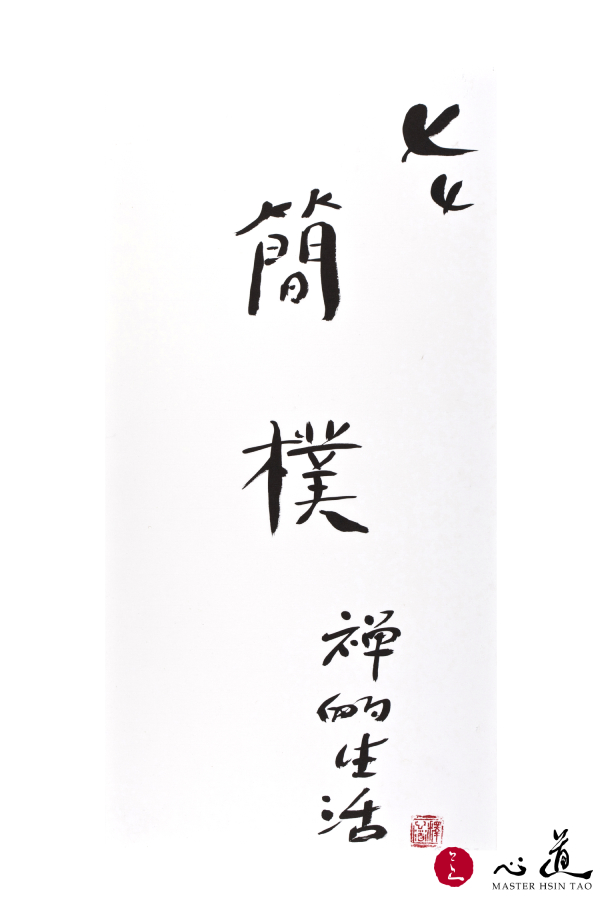 簡樸
禅的生活
心道
MASTER HSIN TAO